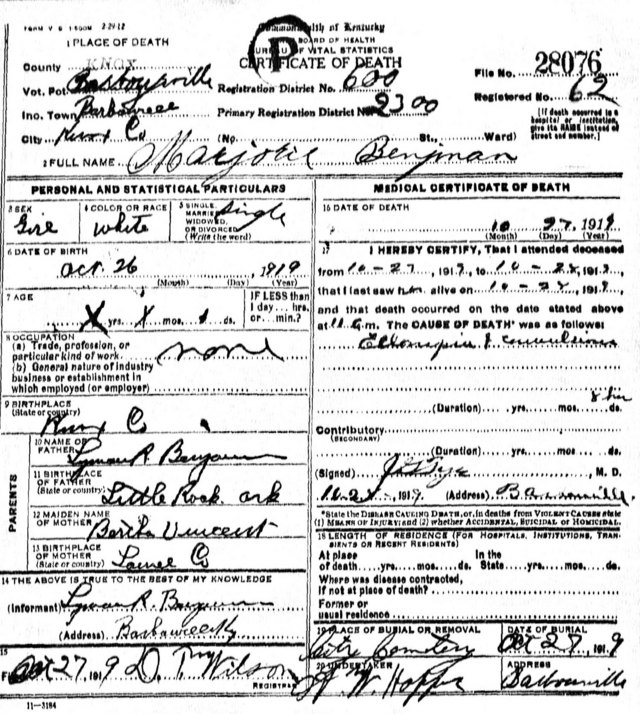 FORM V S 1 500M 2-24-12
Commonwealth of Kentucky
BOARD OF HEALTH
BUREAU OF VITAL STATISTICS
CERTIFICATE OF DEATH
P
1 PLACE OF DEATH
County KNOX
Vot. Pct. Barbourville
Registration District No. 600
File No. 28076
Inc. Town
Primary Registration District No. 2300
Registered No. 62
City Knox Co (No. St., Ward)
[If death occurred in a hospital or institution, give its NAME instead of street and number.]
2 FULL NAME Marjorie Benjman
PERSONAL AND STATISTICAL PARTICULARS
3 SEX
Girl
4 COLOR OR RACE
White
5 SINGLE, MARRIED, WIDOWED, OR DIVORCED (Write the word)
Single
6 DATE OF BIRTH
Oct 26, 1919
(Month) (Day) (Year)
7 AGE
X yrs. X mos. 1 ds.
IF LESS than 1 day....hrs. or....min.?
8 OCCUPATION
(a) Trade, profession, or particular kind of work
none
(b) General nature of industry
business or establishment in
which employed (or employer)
9 BIRTHPLACE
(State or country)
Knox Co
PARENTS
10 NAME OF FATHER
R.
11 BIRTHPLACE OF FATHER
(State or country)
Little Rock Ark
12 MAIDEN NAME OF MOTHER
Bertha Vincent
13 BIRTHPLACE OF MOTHER
(State or country)
Laurel Co
14 THE ABOVE IS TRUE TO THE BEST OF MY KNOWLEDGE
(Informant) R.
(Address)
15
Filed Oct 27, 1919 Wilson
REGISTRAR
11-3184
MEDICAL CERTIFICATE OF DEATH
16 DATE OF DEATH
10 27 1919
(Month) (Day) (Year)
17 I HEREBY CERTIFY, That I attended deceased
from 10-27, 1919, to 10-, 191
that I last saw h alive on 10-, 191
and that death occurred on the date stated above
at 11 m. The CAUSE OF DEATH* was as follows:
convulsions
8 hrs
(Duration) yrs. mos. ds.
Contributory
(SECONDARY)
(Duration) yrs. mos. ds.
(Signed) M. D.
1919 (Address) Barbourville
*State the DISEASE CAUSING DEATH, or, in deaths from VIOLENT CAUSES state
(1) MEANS OF INJURY; and (2) whether ACCIDENTAL, SUICIDAL or HOMICIDAL.
18 LENGTH OF RESIDENCE (FOR HOSPITALS, INSTITUTIONS, TRANSIENTS OR RECENT RESIDENTS)
At place of death yrs. mos. ds. In the State yrs. mos. ds.
Where was disease contracted,
if not at place of death?
Former or
usual residence
19 PLACE OF BURIAL OR REMOVAL
Cemetery
DATE OF BURIAL
Oct 27, 1919
20 UNDERTAKER
W. Hopper
ADDRESS
Barbourville